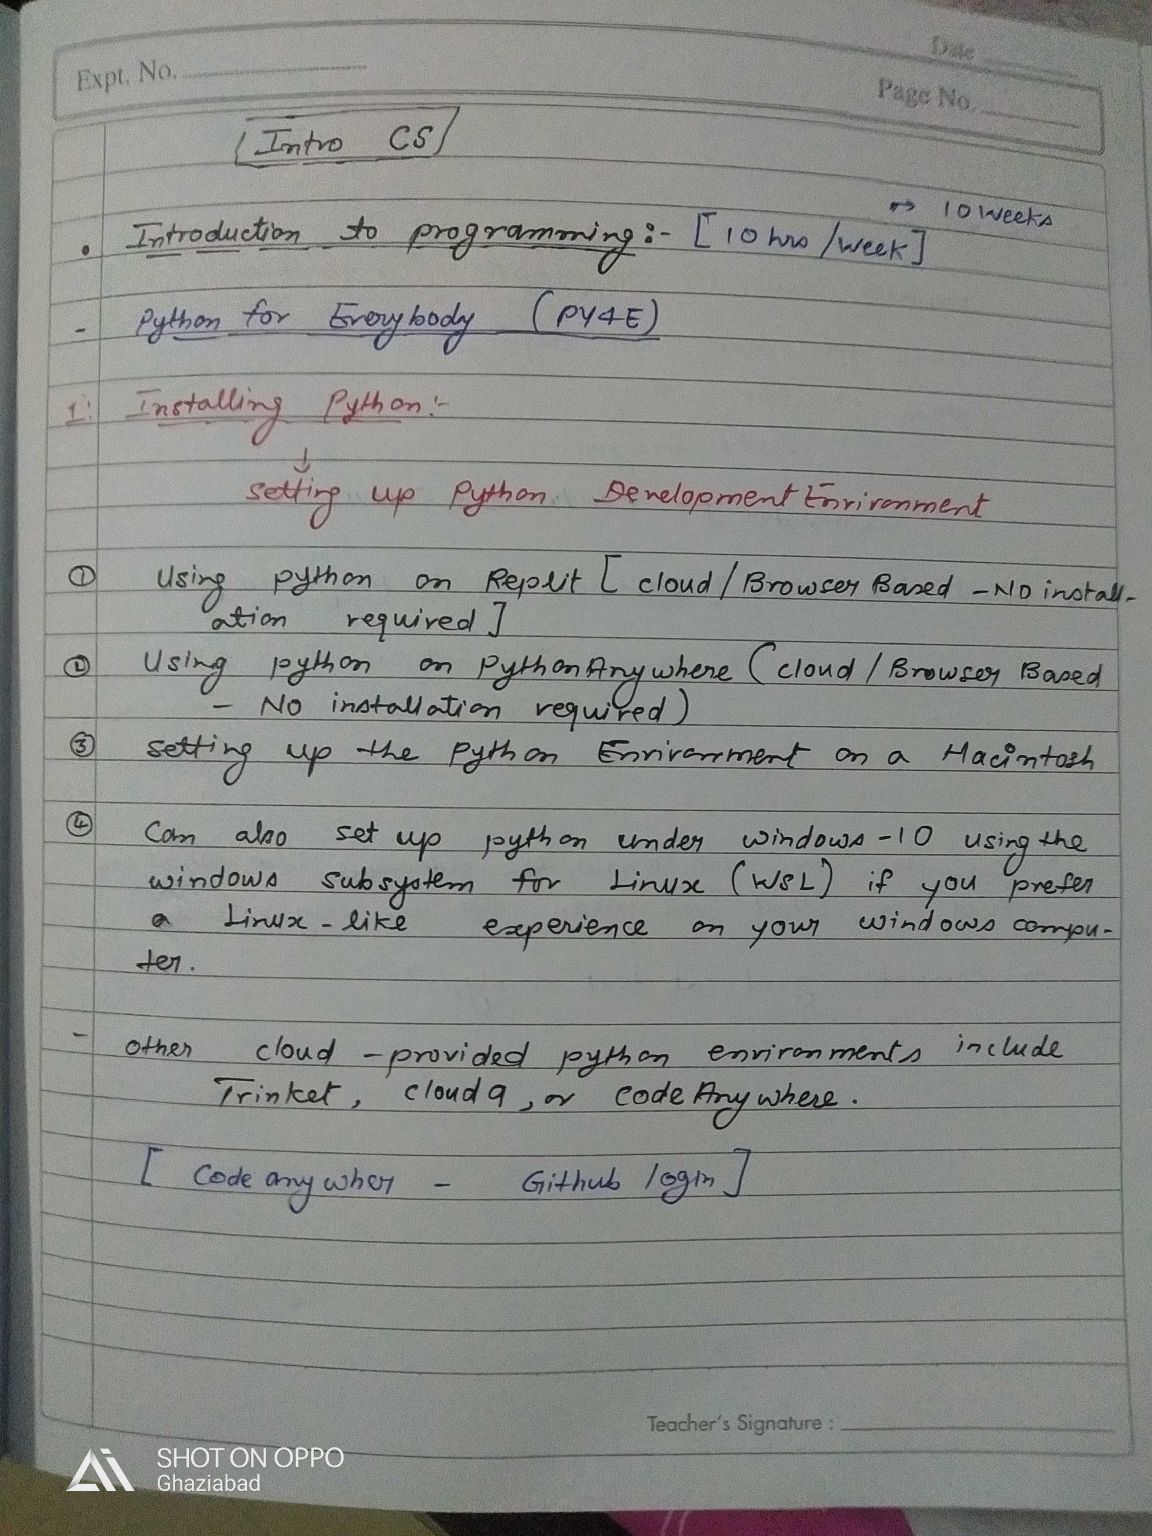 Date
Expt. No.
Page No.
Intro CS
→ 10 weeks
• Introduction to programming:- [10 hrs/week]
- Python for Everybody (PY4E)
1. Installing Python:-
↓
Setting up Python Development Environment
① Using python on Replit [cloud/Browser Based - No install-
ation required]
② Using python on PythonAnywhere (cloud/Browser Based
- No installation required)
③ Setting up the Python Environment on a Macintosh
④ Can also set up python under windows-10 using the
windows subsystem for Linux (WSL) if you prefer
a Linux-like experience on your windows compu-
ter.
- Other cloud-provided python environments include
Trinket, cloud9, or codeAnywhere.
[Code anywher - Github login]
Teacher's Signature :
SHOT ON OPPO
Ghaziabad